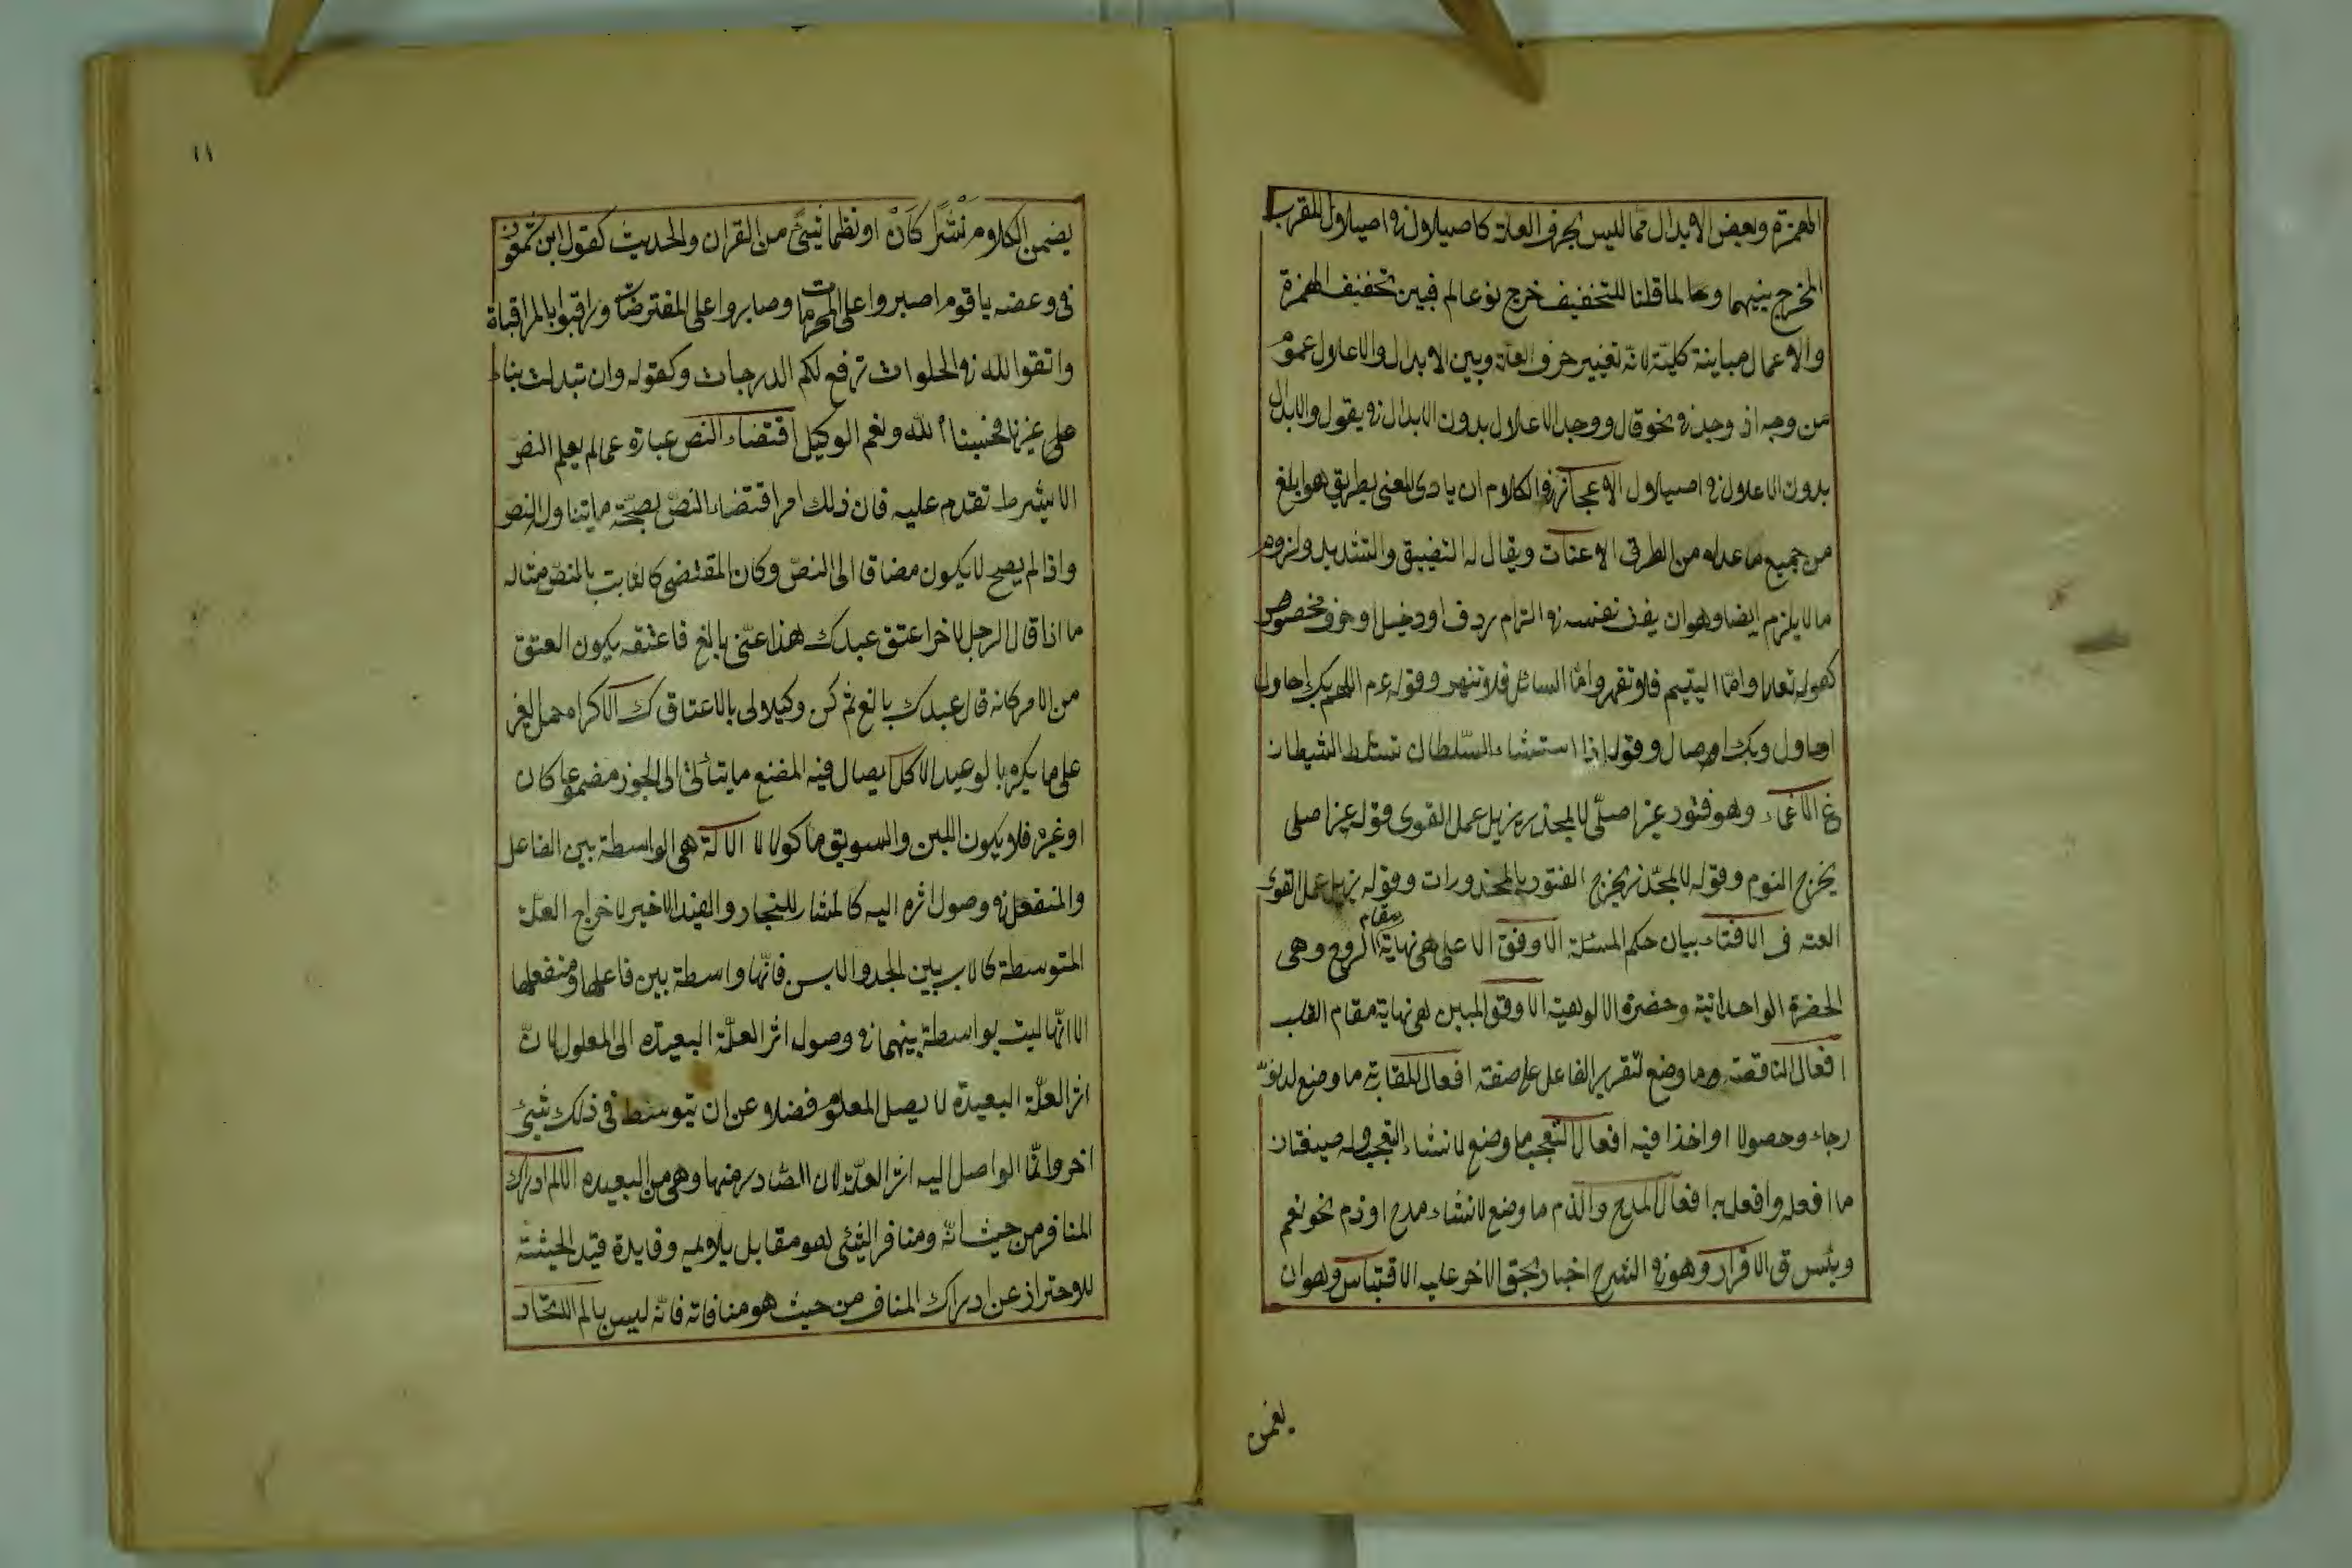 الهمزة وبعض الابدال مما ليس بحرف العلة كاصيلان في اصيلال لقرب
المخرج بينهما ولما قلنا للتخفيف خرج نوعالم فبين تخفيف الهمزة
والاعلال مباينة كلية لانه تغيير حرف العلة وبين الابدال والاعلال عموم
من وجه اذ وجد في نحو قال ووجد الاعلال بدون الابدال في يقول والابدال
بدون الاعلال في اصيلال الاعجاز في الكلام ان يادى المعنى بطريق هو ابلغ
من جميع ما عداه من الطرق الاعنات ويقال له التضييق والتشديد ولزوم
ما لا يلزم ايضا وهو ان يعنت نفسه في التزام ردف او دخيل او حرف مخصوص
كقوله تعالى واما اليتيم فلا تقهر واما السائل فلا تنهر وقوله عم اللهم بك احاول
اوحاول وبك اوصال وقوله اذا استشاء السلطان تسلط الشيطان
غ الاغماء وهو فتور غير اصلى لا بمخدر يزيل عمل القوى قوله غير اصلى
يخرج النوم وقوله لا بمخدر يخرج الفتور بالمخدورات وقوله يزيل عمل القوى
العته ف الافتاء بيان حكم المسئلة الاوفق الاعلى هى نهاية مقام الروح وهى
الحضرة الواحدانية وحضرة الالوهية الاوفق المبين هى نهاية مقام القلب
افعال الناقصة وما وضع لتقرير الفاعل على صفة افعال المقابة ما وضع لدنو
رجاء وحصولا او اخذا فيه افعال التعجب ما وضع لانشاء التعجب وله صيغتان
ما افعله وافعل به افعال المدح والذم ما وضع لانشاء مدح او ذم نحو نعم
وبئس ق الاقرار وهو في الشرع اخبار بحق الاخر عليه الاقتباس وهو ان
يضمن
١١
يضمن الكلام نثرا كان او نظما شئ من القران والحديث كقول ابن شمعون
فى وعضه يا قوم اصبروا على المحرمات وصابروا على المفترضات وراقبوا بالمراقباة
واتقوا لله في الخلوات ترفع لكم الدرجات وكقوله وان تبدلت بناء
على غيرنا فحسبنا الله ونعم الوكيل اقتضاء النص عبارة عما لم يعلم النص
الا بشرط تقدم عليه فان ذلك امر اقتضاء النص بصحة ما يتناول النص
واذا لم يصح لا يكون مضاف الى النص وكان المقتضى كالثابت بالنص مثاله
ما اذا قال الرجل لاخر اعتق عبدك هذا عنى بالغ فاعتقه يكون العتق
من الامر كانه قال عبدك بالغ ثم كن وكيلا لى بالاعتاق ك الاكراه حمل الغير
على ما يكره بالوعيد الاكل ايصال فيه المضغ ما يتأتى الى الجوز مضموعا كان
او غيره فلا يكون اللبن والسويق ماكولا لا الالة هى الواسطة بين الفاعل
والمنفعل في وصول اثره اليه كالمنشار للنجار والقيد الاخير لاخراج العلة
المتوسطة كالاب بين الجد والابن فانها واسطة بين فاعلها ومنفعلها
الا انها ليت بواسطة بينهما في وصول اثر العلة البعيدة الى المعلول لان
اثر العلة البعيدة لا يصل المعلوم فضلا عن ان يتوسط فى ذلك شئ
اخر وانما الواصل اليه اثر العلة لان الصادر منها وهى من البعيده الالم ادراك
المنافر من حيث انه ومنافر الشئ هو مقابل يلايمه وفايدة قيد الحيثية
للاحتراز عن ادراك المنافر من حيث هو منافاته فانه ليس بالم اتحاد